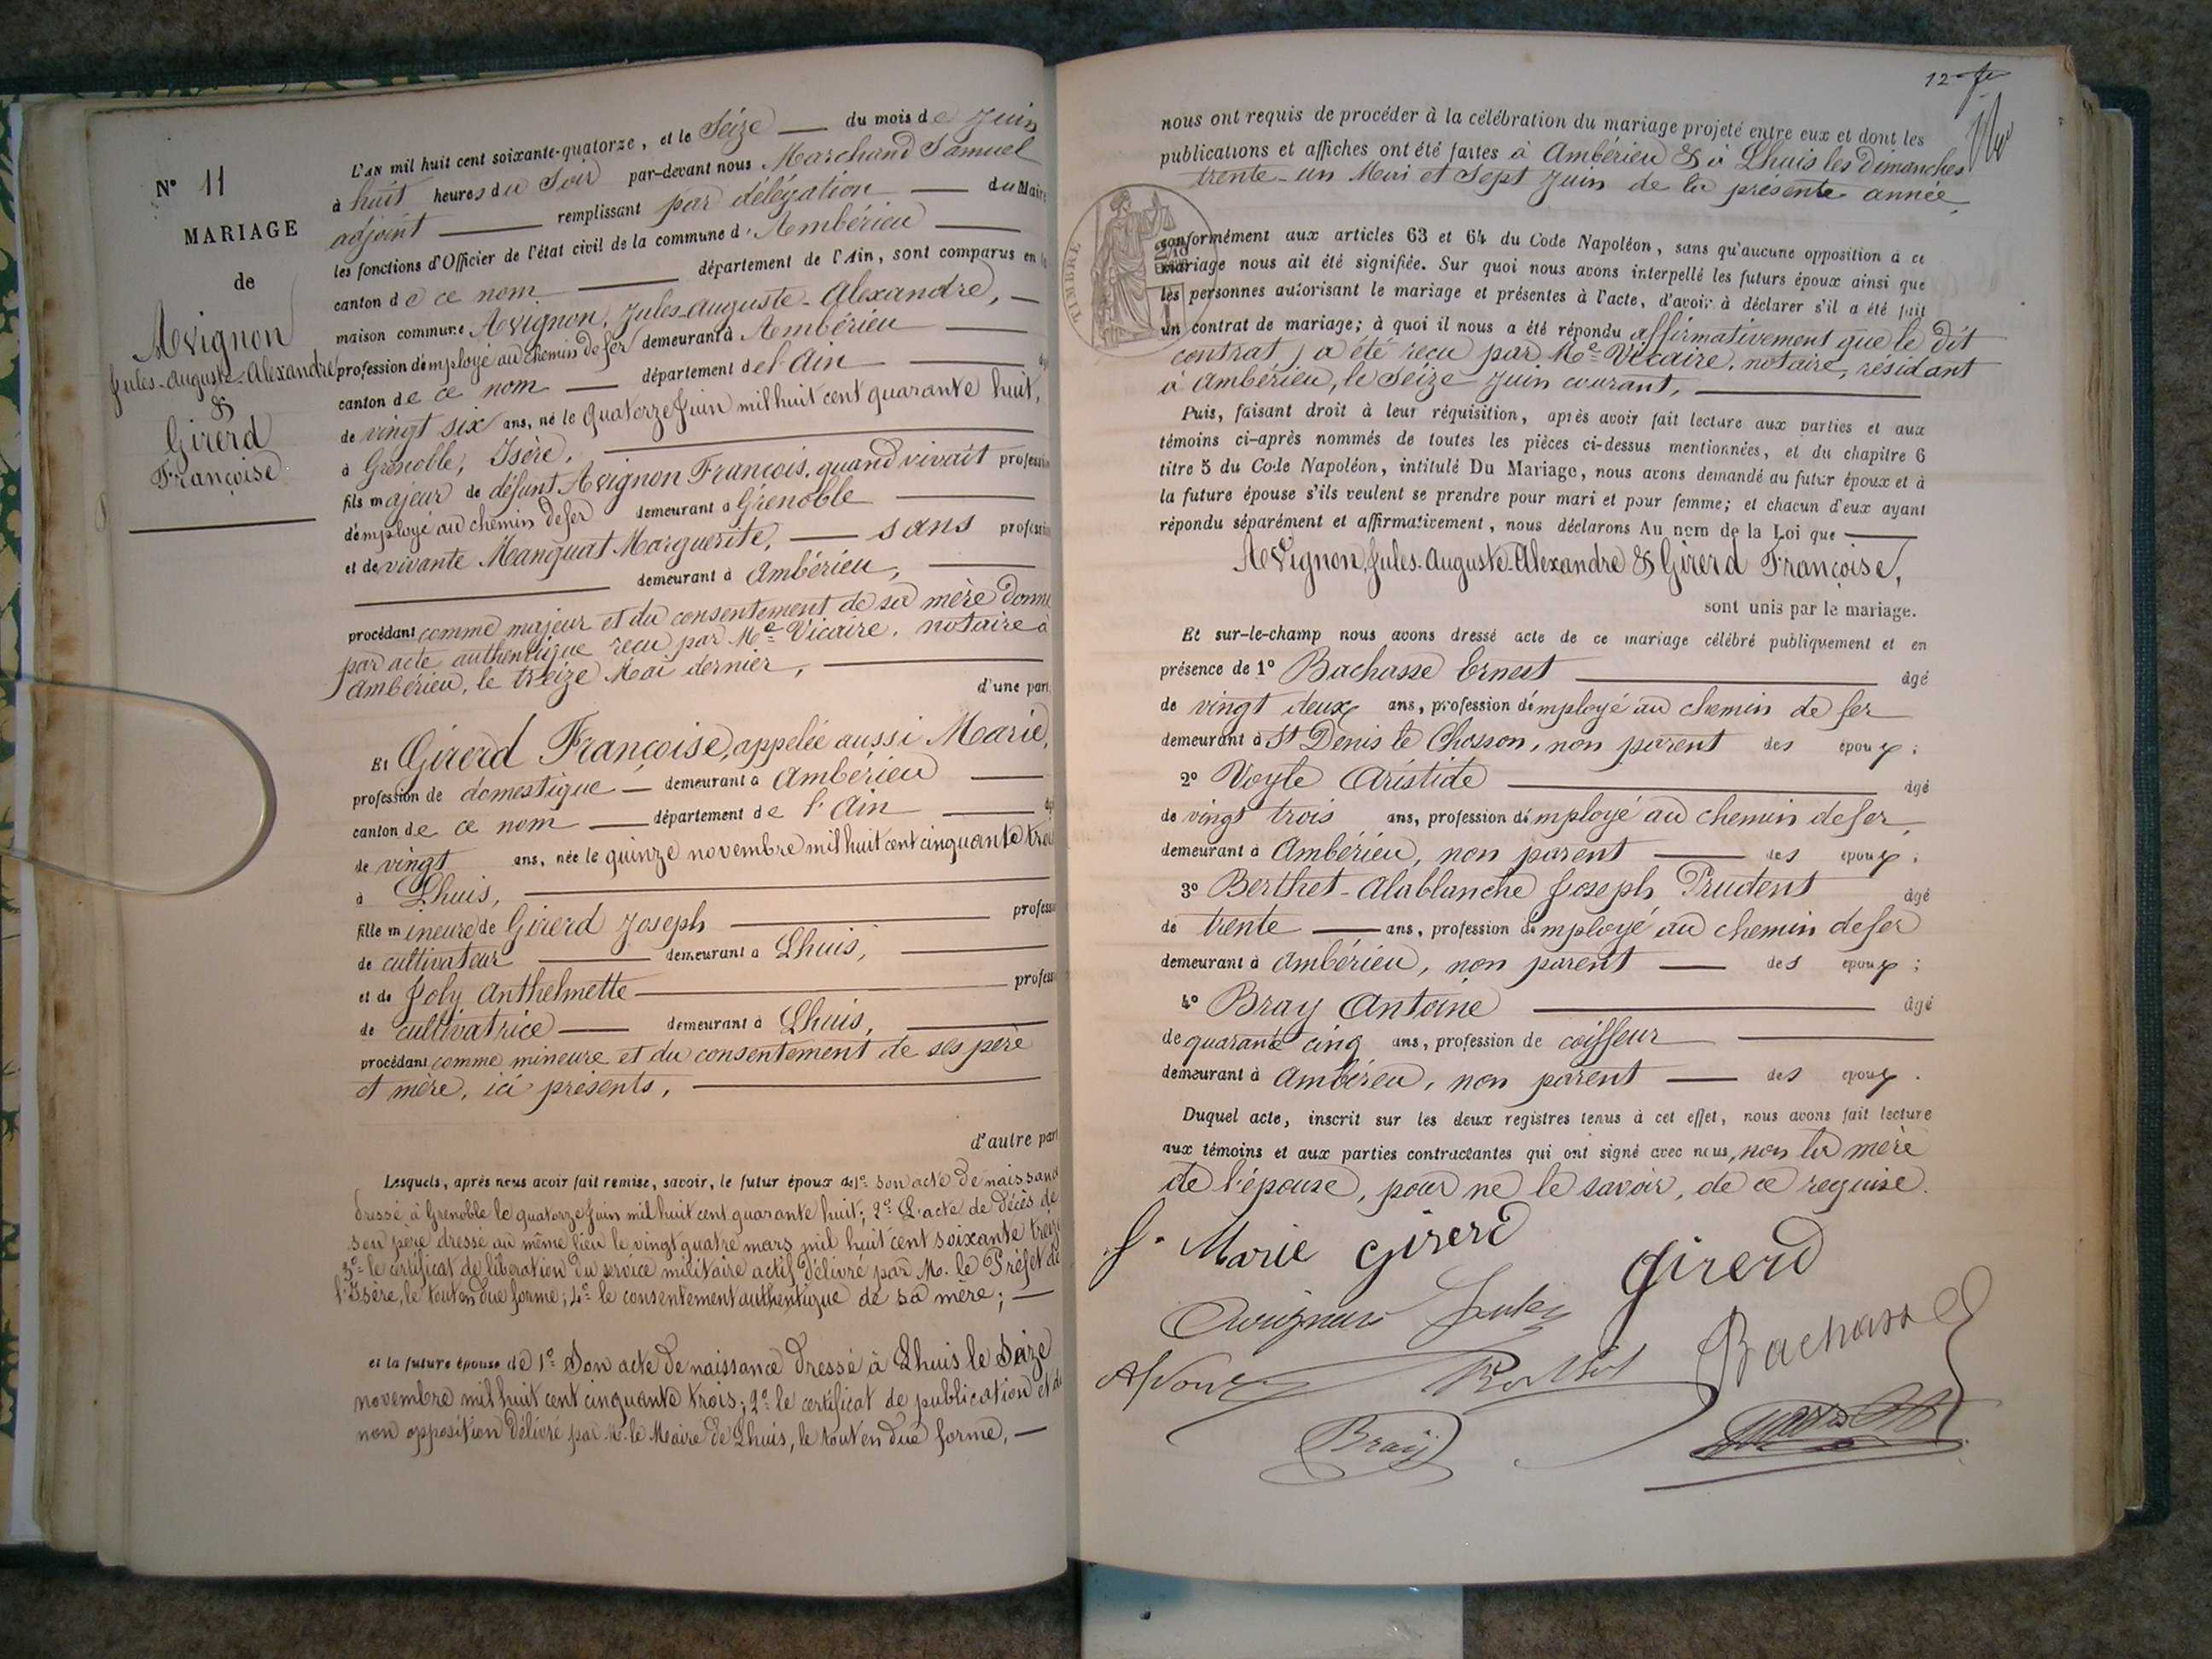 N° 11
MARIAGE
de
Avignon
Jules-Auguste-Alexandre
&
Girerd
Françoise
L'AN mil huit cent soixante-quatorze, et le Seize du mois de Juin
à huit heures du Soir par-devant nous Marchand Samuel
adjoint remplissant par délégation du Maire
les fonctions d'Officier de l'état civil de la commune d'Ambérieu
canton de ce nom département de l'Ain, sont comparus en la
maison commune Avignon, Jules-Auguste-Alexandre,
profession d'employé au chemin de fer demeurant à Ambérieu
canton de ce nom département de l'Ain
de vingt six ans, né le quatorze Juin mil huit cent quarante huit,
à Grenoble, Isère,
fils majeur de défunt Avignon François, quand vivait profession
d'employé au chemin de fer demeurant à Grenoble
et de vivante Manquat Marguerite, sans profession
demeurant à Ambérieu,
procédant comme majeur et du consentement de sa mère donné
par acte authentique reçu par Me Vicaire, notaire à
Ambérieu, le treize Mai dernier,
d'une part,
Et Girerd Françoise, appelée aussi Marie,
profession de domestique demeurant à Ambérieu
canton de ce nom département de l'Ain
de vingt ans, née le quinze novembre mil huit cent cinquante trois
à Lhuis,
fille mineure de Girerd Joseph profession
de cultivateur demeurant à Lhuis,
et de Joly Anthelmette profession
de cultivatrice demeurant à Lhuis,
procédant comme mineure et du consentement de ses père
et mère, ici présents,
d'autre part
Lesquels, après nous avoir fait remise, savoir, le futur époux de 1° son acte de naissance
dressé à Grenoble le quatorze Juin mil huit cent quarante huit; 2° L'acte de décès de
son père dressé au même lieu le vingt quatre mars mil huit cent soixante treize
3° le certificat de libération du service militaire actif délivré par M. le Préfet de
l'Isère, le tout en due forme; 4° le consentement authentique de sa mère;
et la future épouse de 1° Son acte de naissance dressé à Lhuis le Seize
novembre mil huit cent cinquante trois; 2° le certificat de publication et de
non opposition délivré par M. le Maire de Lhuis, le tout en due forme,
12
nous ont requis de procéder à la célébration du mariage projeté entre eux et dont les
publications et affiches ont été faites à Ambérieu & à Lhuis les Dimanches
trente-un Mai et Sept Juin de la présente année,
TIMBRE
conformément aux articles 63 et 64 du Code Napoléon, sans qu'aucune opposition à ce
mariage nous ait été signifiée. Sur quoi nous avons interpellé les futurs époux ainsi que
les personnes autorisant le mariage et présentes à l'acte, d'avoir à déclarer s'il a été fait
un contrat de mariage; à quoi il nous a été répondu affirmativement que le dit
contrat, a été reçu par Me Vicaire, notaire, résidant
à Ambérieu, le Seize Juin courant,
Puis, faisant droit à leur réquisition, après avoir fait lecture aux parties et aux
témoins ci-après nommés de toutes les pièces ci-dessus mentionnées, et du chapitre 6
titre 5 du Code Napoléon, intitulé Du Mariage, nous avons demandé au futur époux et à
la future épouse s'ils veulent se prendre pour mari et pour femme; et chacun d'eux ayant
répondu séparément et affirmativement, nous déclarons Au nom de la Loi que
Avignon, Jules-Auguste-Alexandre & Girerd Françoise,
sont unis par le mariage.
Et sur-le-champ nous avons dressé acte de ce mariage célébré publiquement et en
présence de 1° Bachasse Ernest âgé
de vingt deux ans, profession d'employé au chemin de fer
demeurant à St Denis le Chosson, non parent des époux;
2° Voyle Aristide âgé
de vingt trois ans, profession d'employé au chemin de fer,
demeurant à Ambérieu, non parent des époux;
3° Berthet-Alablanche Joseph Prudent âgé
de trente ans, profession d'employé au chemin de fer
demeurant à Ambérieu, non parent des époux;
4° Bray Antoine âgé
de quarante cinq ans, profession de coiffeur
demeurant à Ambérieu, non parent des époux.
Duquel acte, inscrit sur les deux registres tenus à cet effet, nous avons fait lecture
aux témoins et aux parties contractantes qui ont signé avec nous, non la mère
de l'épouse, pour ne le savoir, de ce requise.
f. Marie Girerd
Girerd
Avignon Jules
Bachasse
Berthet
Bray